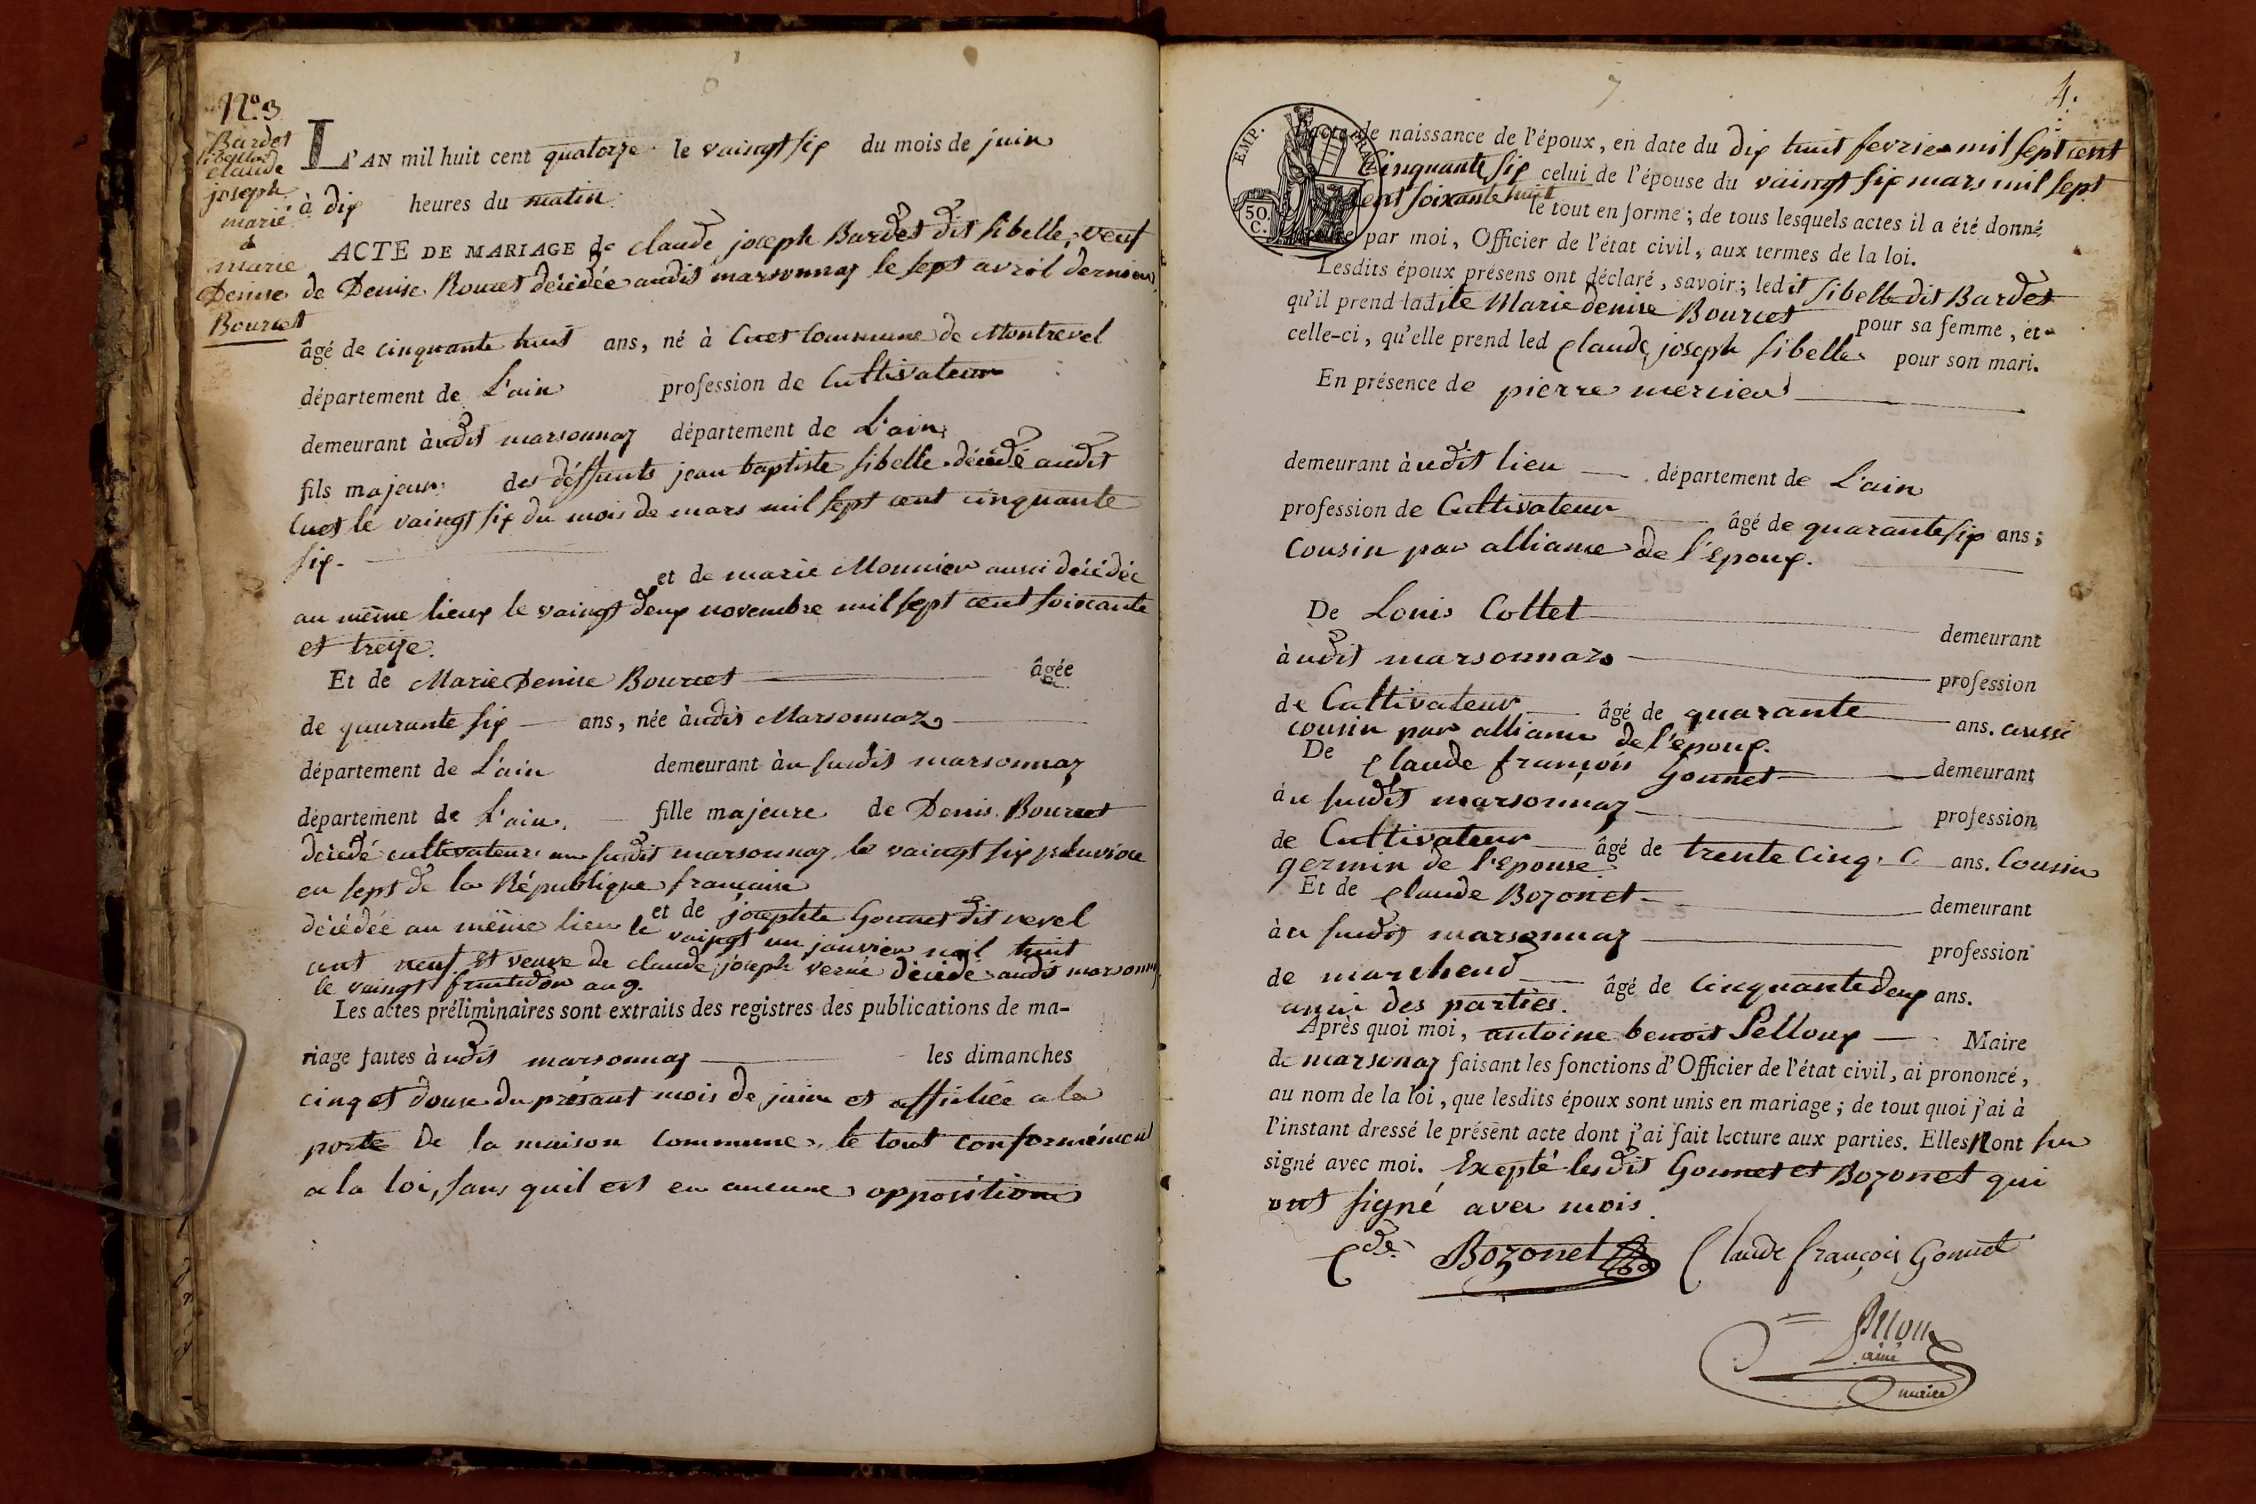 6
N.o 3
Bardet
Sibelle
claude
joseph
marié
à
marie
Denise
Bourcet
L'AN mil huit cent quatorze le vaingt six du mois de juin
à dix heures du matin.
ACTE DE MARIAGE de claude joseph Bardet dit Sibelle, veuf
de Denise Roucet décédée audit marsonnaz le sept avril dernier
âgé de cinquante huit ans, né à Cuet Commune de Montrevel
département de L'ain profession de Cultivateur
demeurant àudit marsonnaz département de L'ain,
fils majeur des déffunts jean baptiste Sibelle décédé audit
Cuet le vaingt six du mois de mars mil sept cent cinquante
six.
et de marie Monnier aussi décédée
au même lieux le vaingt deux novembre mil sept cent soixante
et treize.
Et de Marie Denise Bourcet âgée
de quarante six ans, née àudit Marsonnaz
département de L'ain demeurant àu susdit marsonnaz
département de L'ain. fille majeure de Denis Bourcet
décédé cultivateur au susdit marsonnaz le vaingt six pluviose
en sept de la République française
et de josephte Gonnet dit revel
décédée au même lieu le vaingt un janvier mil huit
cent neuf. Et veuve de claude joseph verné décédé audit marsonnaz
le vaingt fructidor an 9.
Les actes préliminaires sont extraits des registres des publications de ma-
riage faites àudit marsonnaz les dimanches
cinq et douse du présant mois de juin et affichée a la
porte de la maison Commune, le tout conformément
a la loi, sans quil est eu aucune opposition
7
4.
EMP. FRA
50.
C.
l'acte de naissance de l'époux, en date du dix huit fevrier mil sept cent
Cinquante six celui de l'épouse du vaingt six mars mil sept
cent soixante huit le tout en forme; de tous lesquels actes il a été donné
lecture par moi, Officier de l'état civil, aux termes de la loi.
Lesdits époux présens ont déclaré, savoir; ledit Sibelle dit Bardet
qu'il prend ladite Marie denise Bourcet pour sa femme, et
celle-ci, qu'elle prend led claude joseph Sibelle pour son mari.
En présence de pierre mercier
demeurant àudit lieu département de L'ain
profession de Cultivateur âgé de quarante six ans;
Cousin par alliance de l'Epoux.
De Louis Collet demeurant
àudit marsonnaz profession
de Cultivateur âgé de quarante ans. aussi
cousin par alliance de l'époux.
De claude françois Gonnet demeurant
àu susdit marsonnaz profession
de Cultivateur âgé de trente cinq. ans. Coussin
germin de l'Epouse
Et de claude Bozonet demeurant
àu susdit marsonnaz profession
de marchend âgé de cinquante deux ans.
amir des parties.
Après quoi moi, antoine benoit Pelloux Maire
de marsonaz faisant les fonctions d'Officier de l'état civil, ai prononcé,
au nom de la loi, que lesdits époux sont unis en mariage; de tout quoi j'ai à
l'instant dressé le présent acte dont j'ai fait lecture aux parties. Elles Nont su
signé avec moi. Exepté lesdit Gonnet et Bozonet qui
ont signé avec mois.
Cde. Bozonet Claude françois Gonnet
Pelloux
ainé
maire